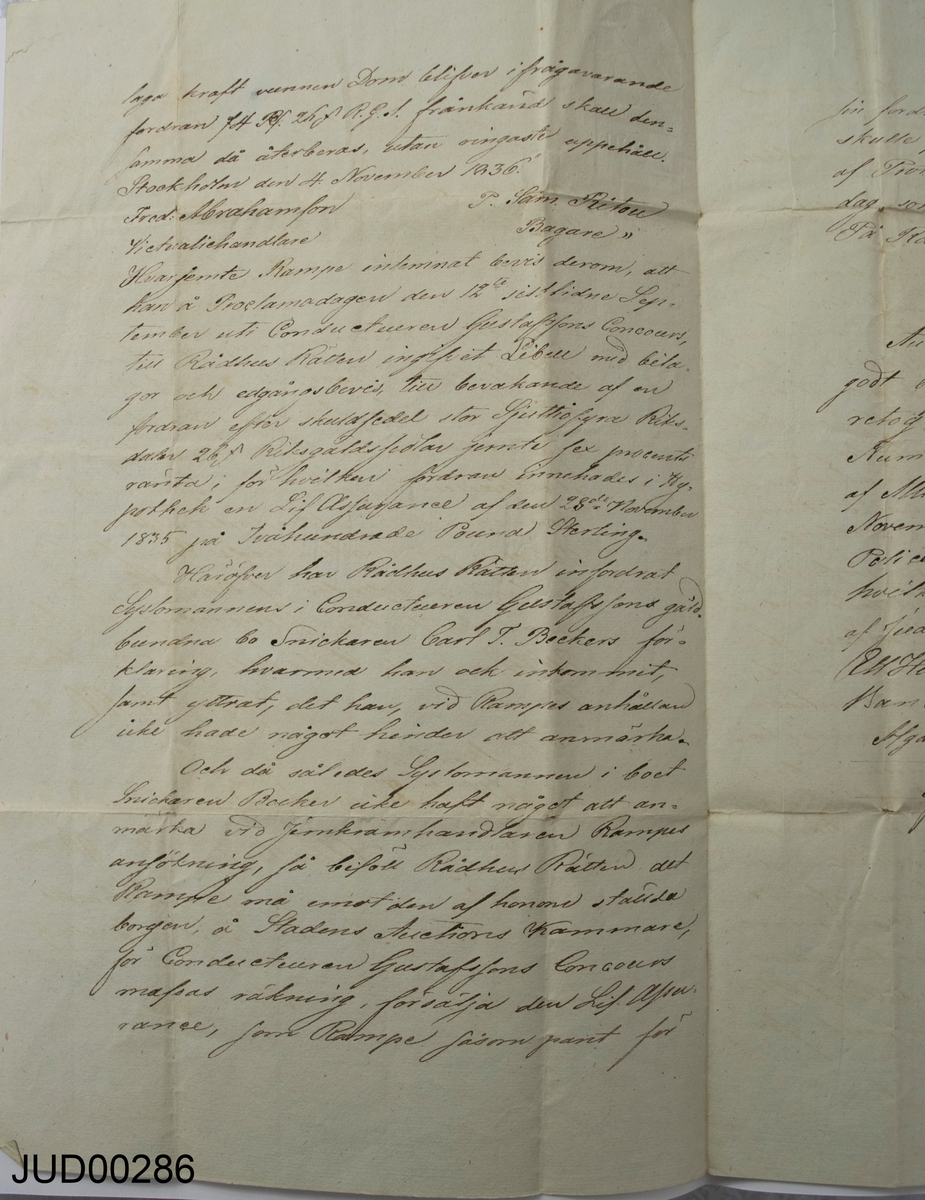 laga kraft vunnen Dom blifver ifrågavarande
fordran 74 Rd. 26 s R.G.S. frånkänd skall den-
samma då återbäras, utan ringaste uppehåll.
Stockholm den 4. November 1836.
Fred: Abrahamson P. Sam. Ritou
Victualiehandlare Bagare"
Hvarjemte Rampe inlemnat bevis derom, att
han å Proclamadagen den 12te sistlidne Sep-
tember uti Conducteuren Gustafssons Concours,
till Rådhus Rätten ingifvit Libell med bila-
gor och edgångsbevis, till bevakande af en
fordran efter skuldsedel stor Sjuttiofyra Riks-
daler 26 s Riksgäldssedlar jemte sex procents
ränta; för hvilken fordran innehades i Hy-
pothek en Lif Assurance af den 23de November
1835 på Tvåhundrade Pound Sterling.
Häröfver har Rådhus Rätten infordrat
Sysslomannens i Conducteuren Gustafssons gäld-
bundna bo Snickaren Carl T. Beckers för-
klaring, hvarmed han ock inkommit,
samt yttrat, det han, vid Rampes anhållan
icke hade något hinder att anmärka.
Och då således Sysslomannen i boet
Snickaren Becker icke haft något att an-
märka vid Jernkramhandlaren Rampes
ansökning, så biföll Rådhus Rätten det
Rampe må emot den af honom ställda
borgen, å Stadens Auctions Kammare,
för Conducteuren Gustafssons Concours
massas räkning, försälja den Lif Assu-
rance, som Rampe såsom pant för
sin ford
skulle
af
dag, so
På
Au
godt
retog
Rum
af
Novem
Police
hvilk
af
Ett H
Ban
JUD00286